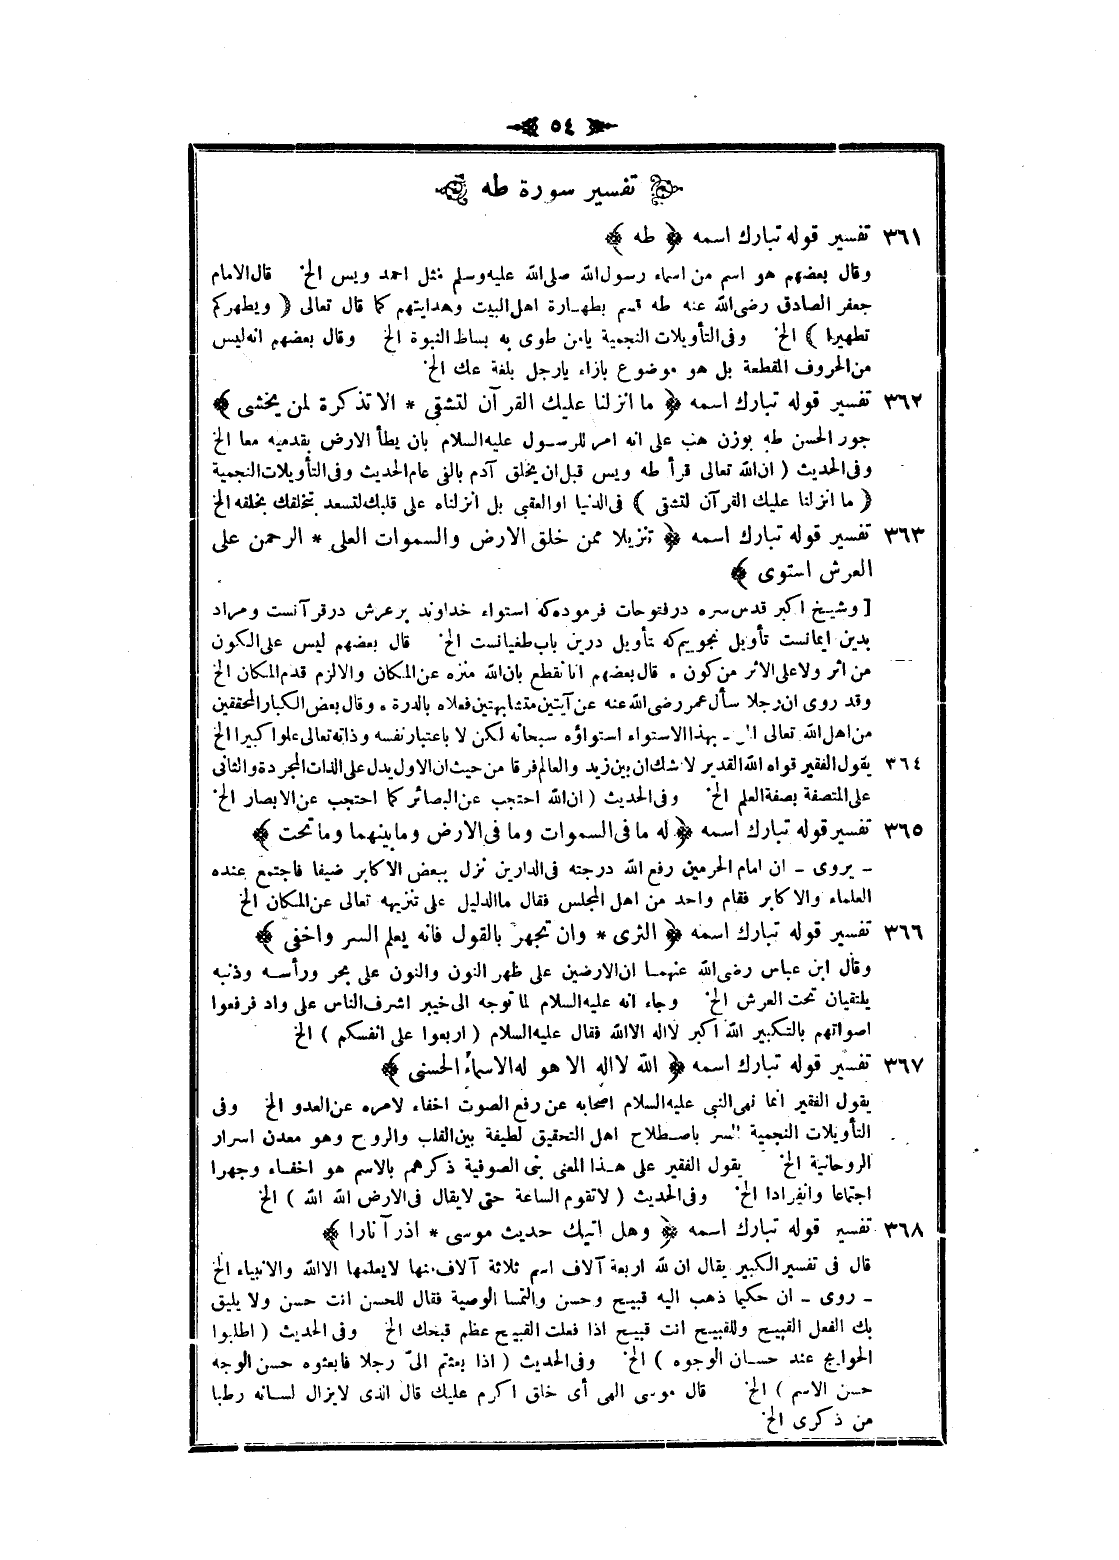 ٥٤
تفسير سورة طه
٣٦١ تفسير قوله تبارك اسمه ﴿ طه ﴾
وقال بعضهم هو اسم من اسماء رسول الله صلى الله عليه وسلم مثل احمد ويس الخ قال الامام
جعفر الصادق رضى الله عنه طه قسم بطهارة اهل البيت وهدايتهم كما قال تعالى ( ويطهركم
تطهيرا ) الخ وفى التأويلات النجمية يامن طوى به بساط النبوة الخ وقال بعضهم انه ليس
من الحروف المقطعة بل هو موضوع بازاء يارجل بلغة عك الخ
٣٦٢ تفسير قوله تبارك اسمه ﴿ ما انزلنا عليك القرآن لتشقى * الا تذكرة لمن يخشى ﴾
جور الحسن طه بوزن هب على انه امر للرسول عليه السلام بان يطأ الارض بقدميه معا الخ
وفى الحديث ( ان الله تعالى قرأ طه ويس قبل ان يخلق آدم بالفى عام الحديث وفى التأويلات النجمية
( ما انزلنا عليك القرآن لتشقى ) فى الدنيا او العقبى بل انزلناه على قلبك لتسعد بتخلقك بخلقه الخ
٣٦٣ تفسير قوله تبارك اسمه ﴿ تنزيلا ممن خلق الارض والسموات العلى * الرحمن على
العرش استوى ﴾
[ وشيخ اكبر قدس سره در فتوحات فرموده كه استواء خداوند بر عرش در قرآنست ومراد
بدين ايمانست تأويل نجوييم كه تأويل درين باب طغيانست الخ قال بعضهم ليس على الكون
من اثر ولا على الاثر من كون ٠ قال بعضهم انا نقطع بان الله منزه عن المكان والا لزم قدم المكان الخ
وقد روى ان رجلا سأل عمر رضى الله عنه عن آيتين متشابهتين فعلاه بالدرة ٠ وقال بعض الكبار المحققين
من اهل الله تعالى بهذا الاستواء استواؤه سبحانه لكن لا باعتبار نفسه وذاته تعالى علوا كبيرا الخ
٣٦٤ يقول الفقير قواه الله القدير لا شك ان بين زيد والعالم فرقا من حيث ان الاول يدل على الذات المجردة والثانى
على المتصفة بصفة العلم الخ وفى الحديث ( ان الله احتجب عن البصائر كما احتجب عن الابصار الخ
٣٦٥ تفسير قوله تبارك اسمه ﴿ له ما فى السموات وما فى الارض وما بينهما وما تحت ﴾
ـ يروى ـ ان امام الحرمين رفع الله درجته فى الدارين نزل ببعض الاكابر ضيفا فاجتمع عنده
العلماء والاكابر فقام واحد من اهل المجلس فقال ما الدليل على تنزيهه تعالى عن المكان الخ
٣٦٦ تفسير قوله تبارك اسمه ﴿ الثرى * وان تجهر بالقول فانه يعلم السر واخفى ﴾
وقال ابن عباس رضى الله عنهما ان الارضين على ظهر النون والنون على بحر ورأسه وذنبه
يلتقيان تحت العرش الخ وجاء انه عليه السلام لما توجه الى خيبر اشرف الناس على واد فرفعوا
اصواتهم بالتكبير الله اكبر لا اله الا الله فقال عليه السلام ( اربعوا على انفسكم ) الخ
٣٦٧ تفسير قوله تبارك اسمه ﴿ الله لا اله الا هو له الاسماء الحسنى ﴾
يقول الفقير انما نهى النبى عليه السلام اصحابه عن رفع الصوت اخفاء لامره عن العدو الخ وفى
التأويلات النجمية السر باصطلاح اهل التحقيق لطيفة بين القلب والروح وهو معدن اسرار
الروحانية الخ يقول الفقير على هذا المعنى بنى الصوفية ذكرهم بالاسم هو اخفاء وجهرا
اجتماعا وانفرادا الخ وفى الحديث ( لا تقوم الساعة حتى لا يقال فى الارض الله الله ) الخ
٣٦٨ تفسير قوله تبارك اسمه ﴿ وهل اتيك حديث موسى * اذ رآ نارا ﴾
قال فى تفسير الكبير يقال ان لله اربعة آلاف اسم ثلاثة آلاف منها لا يعلمها الا الله والانبياء الخ
ـ روى ـ ان حكيما ذهب اليه قبيح وحسن والتمسا الوصية فقال للحسن انت حسن ولا يليق
بك الفعل القبيح وللقبيح انت قبيح اذا فعلت القبيح عظم قبحك الخ وفى الحديث ( اطلبوا
الحوايج عند حسان الوجوه ) الخ وفى الحديث ( اذا بعثتم الىّ رجلا فابعثوه حسن الوجه
حسن الاسم ) الخ قال موسى الهى أى خلق اكرم عليك قال الذى لا يزال لسانه رطبا
من ذكرى الخ